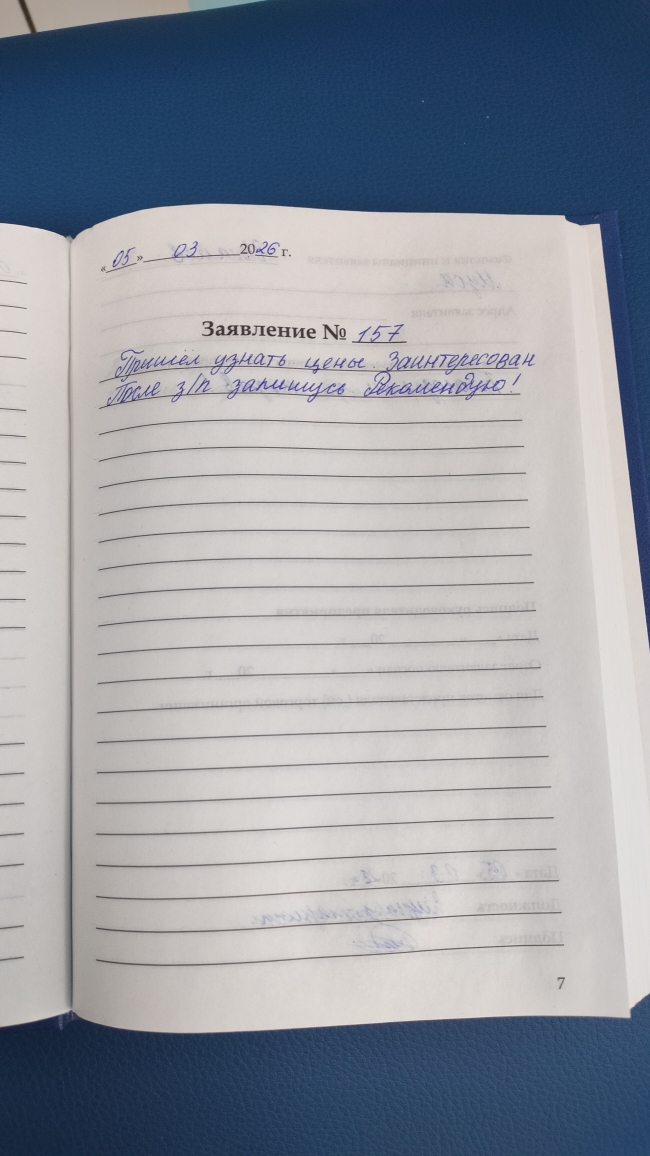 «05» 03 2026 г.
Заявление № 157
Пришёл узнать цены. Заинтересован
После з/п запишусь Рекомендую!
7